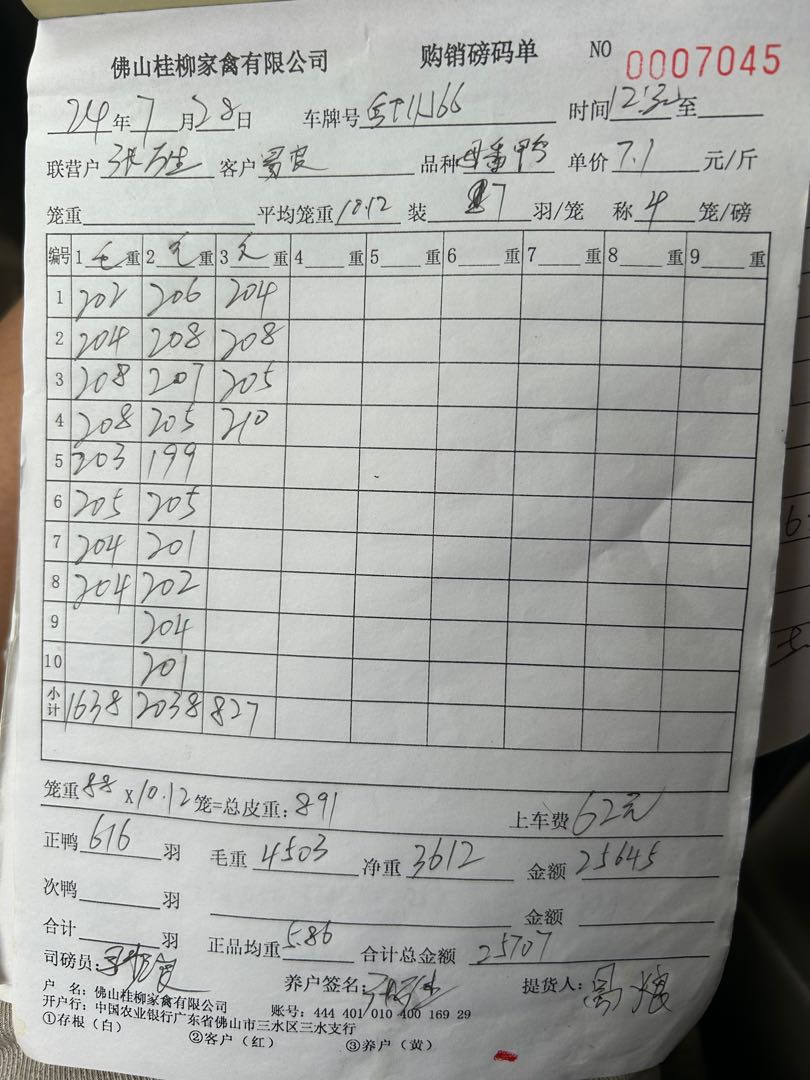 佛山桂柳家禽有限公司 购销磅码单 NO 0007045
24年7月28日 车牌号 时间12:30至
联营户 张石生 客户 品种 母番鸭 单价 7.1 元/斤
笼重 平均笼重 10.12 装 7 羽/笼 称 4 笼/磅
编号 1 毛 重 2 毛 重 3 毛 重 4 重 5 重 6 重 7 重 8 重 9 重
1 202 206 204
2 204 208 208
3 208 207 205
4 208 205 210
5 203 199
6 205 205
7 204 201
8 204 202
9 204
10 201
小计 1638 2038 827
笼重 88 x 10.12 笼=总皮重: 891 上车费 62元
正鸭 616 羽 毛重 4503 净重 3612 金额 25645
次鸭 羽 金额
合计 羽 正品均重 5.86 合计总金额 25707
司磅员: 养户签名: 提货人:
户 名: 佛山桂柳家禽有限公司
开户行: 中国农业银行广东省佛山市三水区三水支行 账号: 444 401 010 400 169 29
①存根(白) ②客户(红) ③养户(黄)